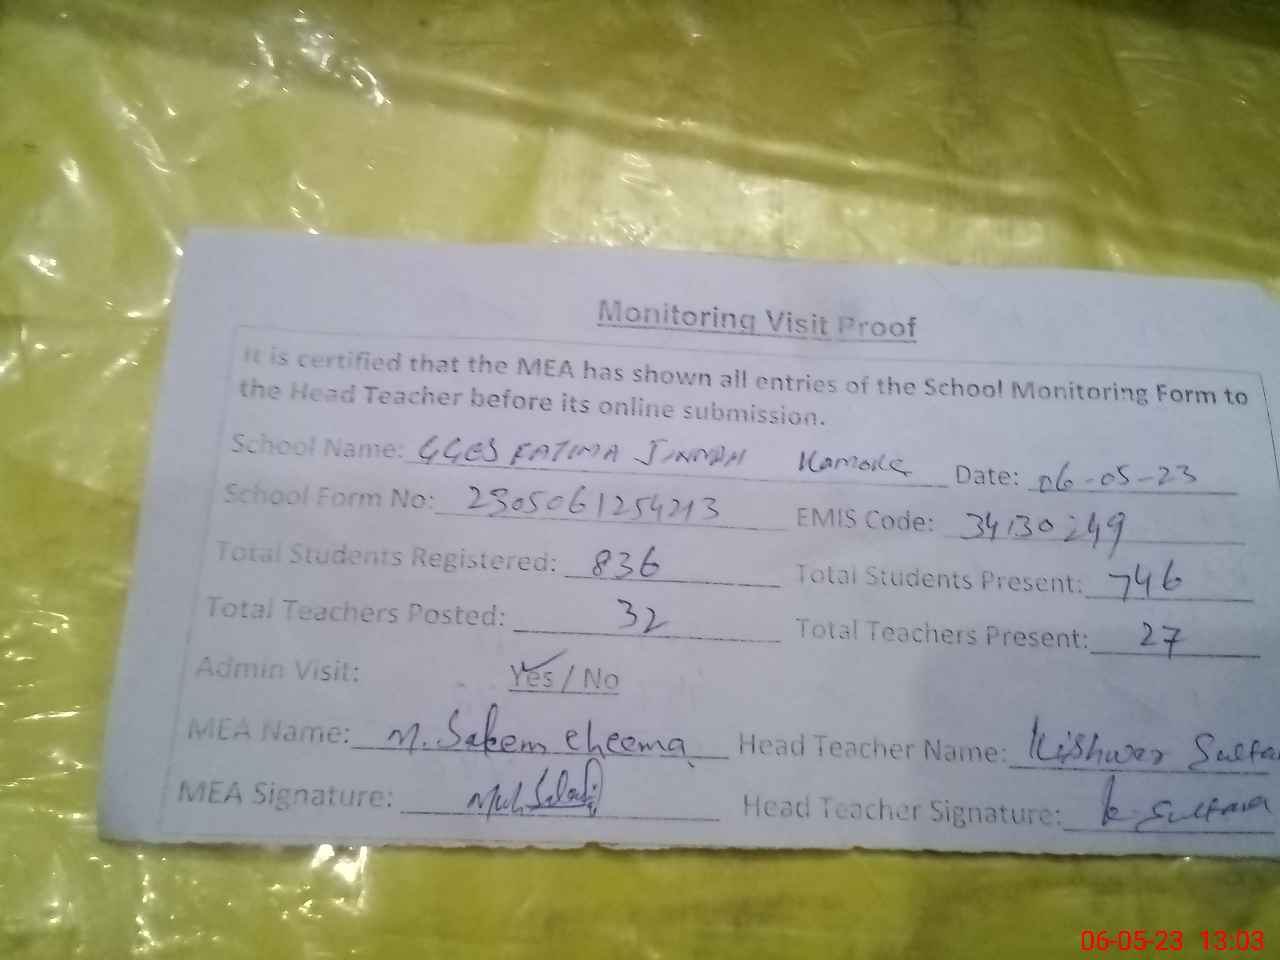 Monitoring Visit Proof
It is certified that the MEA has shown all entries of the School Monitoring Form to
the Head Teacher before its online submission.
School Name: GGES FATIMA JINNAH Kamoke Date: 06-05-23
School Form No: 2305061254213 EMIS Code:
Total Students Registered: 836 Total Students Present: 746
Total Teachers Posted: 32 Total Teachers Present: 27
Admin Visit: Yes / No
MEA Name: M. Saleem cheema Head Teacher Name: Kishwer
MEA Signature: Head Teacher Signature: K. Sultana
06-05-23 13:03